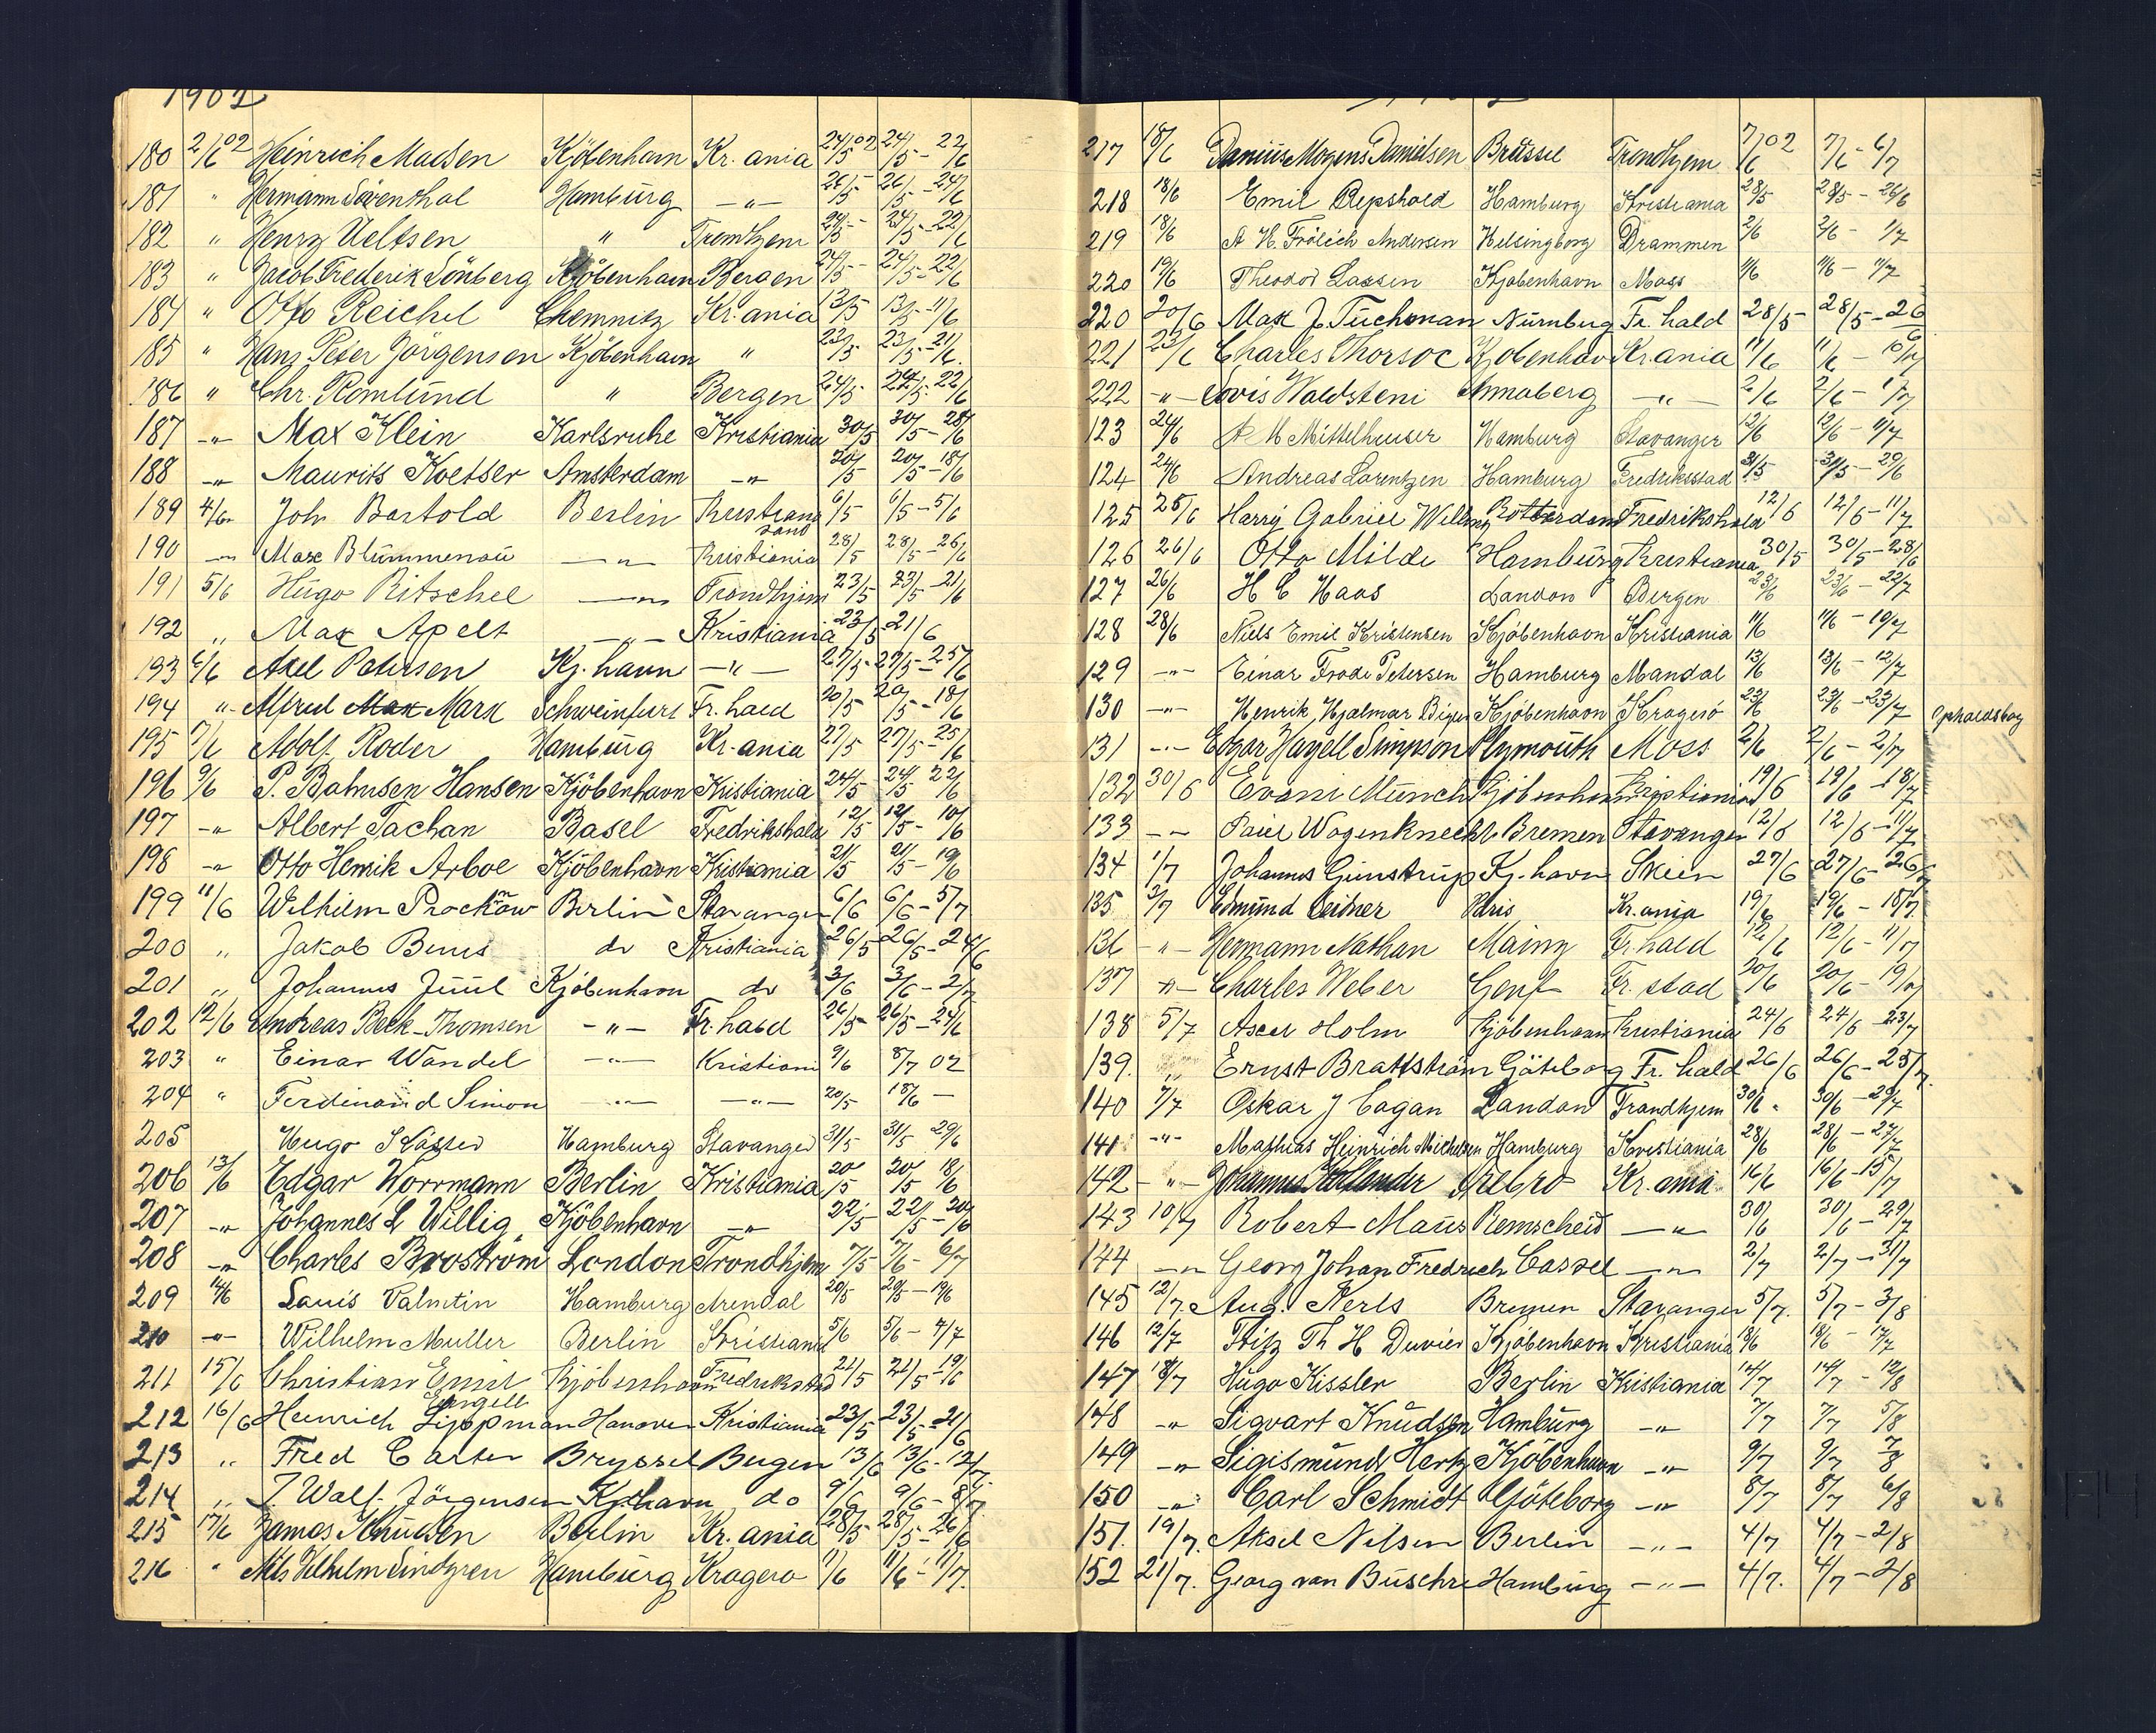 1902
180 2/6 02 Heinrich Madsen Kjöbenhavn Kr. ania 24/5 02 24/5 - 22/6
181 " Hermann Hamburg -"- 26/5 26/5 - 24/6
182 " Henry Ueltsen " Trondhjem 24/5 24/5 - 22/6
183 " Jacob Frederik Lönberg Kjöbenhavn Bergen 24/5 24/5 - 22/6
184 " Otto Reichel Chemnitz Kr. ania 13/5 13/5 - 11/6
185 " Hans Peter Jörgensen Kjöbenhavn " 23/5 23/5 - 21/6
186 " Chr. Romlund " Bergen 24/5 24/5 - 22/6
187 -"- Max Klein Karlsruhe Kristiania 30/5 30/5 - 28/6
188 -"- Maurits Koetser Amsterdam -"- 20/5 20/5 - 18/6
189 4/6 Joh Bartold Berlin Kristiansand 6/5 6/5 - 5/6
190 -"- Max Blümmenau -"- Kristiania 28/5 28/5 - 26/6
191 5/6 Hugo Ritschel -"- Trondhjem 23/5 23/5 - 21/6
192 " Max Apelt -"- Kristiania 23/5 21/6
193 6/6 Axel Petersen Kj. havn -"- 27/5 27/5 - 25/6
194 " Alfred Max Marx Schweinfurt Fr. hald 20/5 20/5 - 18/6
195 7/6 Adolf Roder Hamburg Kr. ania 27/5 27/5 - 25/6
196 9/6 P. Bahnsen Hansen Kjöbenhavn Kristiania 24/5 24/5 22/6
197 -"- Albert Tachan Basel Fredrikshald 12/5 12/5 - 10/6
198 -"- Otto Henrik Arboe Kjöbenhavn Kristiania 21/5 21/5 - 19/6
199 11/6 Wilhelm Prockow Berlin Stavanger 6/6 6/6 - 5/7
200 " Jakob do Kristiania 26/5 26/5 - 24/6
201 " Johannes Juul Kjöbenhavn do 3/6 3/6 - 2/7
202 12/6 Andreas Beck-Thomsen -"- Fr. hald 26/5 26/5 - 24/6
203 " Einar Wandel -"- Kristiani 9/6 8/7 02
204 " Ferdinand Simon -"- -"- 20/5 18/6 -
205 Hugo Hamburg Stavanger 31/5 31/5 29/6
206 13/6 Edgar Worrmann Berlin Kristiania 20/5 20/5 18/6
207 -"- Johannes L Willig Kjöbenhavn -"- 22/5 22/5 - 20/6
208 -"- Charles Broström London Trondhjem 7/5 7/6 - 6/7
209 14/6 Louis Valentin Hamburg Arendal 20/5 20/5 - 19/6
210 -"- Wilhelm Muller Berlin Kristiania 5/6 5/6 - 4/7
211 15/6 Christian Emil Engell Kjöbenhavn Fredrikstad 21/5 21/5 - 19/6
212 16/6 Heinrich Lippman Hanover Kristiania 23/5 23/5 - 21/6
213 " Fred Carter Bryssel Bergen 13/6 13/6 - 12/7
214 " J. Walf. Jörgensen Kjøbhavn do 9/6 9/6 - 8/7
215 17/6 James Knudsen Berlin Kr. ania 28/5 28/5 - 26/6
216 " Nils Vilhelm Lindgren Hamburg Kragerö 11/6 11/6 - 11/7
217 18/6 Danius Mogens Danielsen Brüssel Trondhjem 7/6 02 7/6 - 6/7
218 18/6 Emil Repshold Hamburg Kristiania 28/5 28/5 - 26/6
219 18/6 A H. Frölich Andersen Helsingborg Drammen 2/6 2/6 - 1/7
220 19/6 Theodor Lassen Kjøbenhavn Moss 11/6 11/6 - 11/7
220 20/6 Max J. Tuchman Nürnberg Fr. hald 28/5 28/5 - 26/6
221 23/6 Charles Thorsoe Kjøbenhavn Kr. ania 11/6 11/6 - 10/7
222 -"- Lovis Waldstein Annaberg -"- 2/6 2/6 - 1/7
123 24/6 A M Mittelhauser Hamburg Stavanger 12/6 12/6 - 11/7
124 24/6 Andreas Lorentzen Hamburg Fredriksstad 31/5 31/5 - 29/6
125 25/6 Harry Gabriel Rotterdam Fredrikshald 12/6 12/6 - 11/7
126 26/6 Otto Milde Hamburg Kristiania 30/5 30/5 - 28/6
127 26/6 H C Haas London Bergen 23/6 23/6 - 22/7
128 28/6 Niels Emil Kristensen Kjöbenhavn Kristiania 11/6 11/6 - 10/7
129 -"- Einar Frode Petersen Hamburg Mandal 13/6 13/6 - 12/7
130 -"- Henrik Hjalmar Kjöbenhavn Kragerö 23/6 23/6 - 23/7 Opholdsbog
131 -"- Edgar Hayell Simpson Plymouth Moss 2/6 2/6 - 2/7
132 30/6 Münch Kjöbenhavn Kristiania 19/6 19/6 - 18/7
133 -"- Paul Wagenknecht Bremen Stavanger 12/6 12/6 - 11/7
134 1/7 Johannes Gunstrup Kj. havn Skien 27/6 27/6 - 26/7
135 3/7 Edmund Leidner Paris Kr. ania 19/6 19/6 - 18/7
136 -"- Hermann Nathan Mainz Fr. hald 12/6 12/6 - 11/7
137 -"- Charles Weber Genf Fr. stad 20/6 20/6 - 19/7
138 5/7 Axel Holm Kjöbenhavn Kristiania 24/6 24/6 - 23/7
139. " Ernst Brattström Göteborg Fr. hald 26/6 26/6 - 25/7
140 7/7 Oskar J Cagan London Trondhjem 30/6 30/6 - 29/7
141 -"- Mathias Heinrich Michelsen Hamburg Kristiania 28/6 28/6 - 27/7
142 -"- Johannes Örebro Kr. ania 16/6 16/6 - 15/7
143 10/7 Robert Maus Remscheid -"- 30/6 30/6 - 29/7
144 -"- Georg Johan Fredrich Cassel -"- 2/7 2/7 - 31/7
145 12/7. Aug. Kerls Bremen Stavanger 5/7. 5/7 - 3/8
146 12/7 Fritz Th H Duvier Kjöbenhavn Kristiania 18/6 18/6 - 17/7
147 18/7 Hugo Kissler Berlin Kristiania 14/7 14/7 - 12/8
148 -"- Sigvart Knudsen Hamburg -"- 7/7 7/7 5/8
149 -"- Sigismund Hertz Kjöbenhavn -"- 9/7 9/7 7/8
150 -"- Carl Schmidt Göteborg -"- 8/7 8/7 6/8
151. 19/7. Aksel Nilsen Berlin -"- 4/7 4/7 - 2/8
152 21/7. Georg van Buschre Hamburg -"- 4/7. 4/7 - 2/8